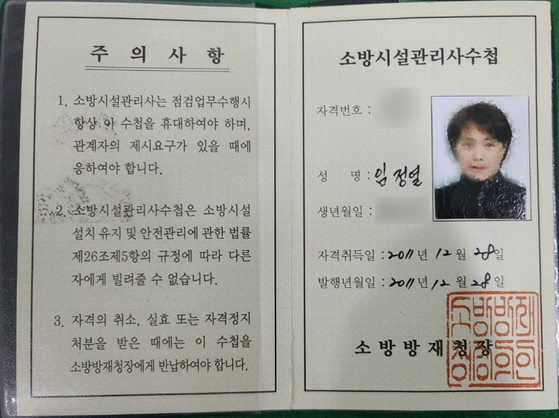 주 의 사 항
1. 소방시설관리사는 점검업무수행시
항상 이 수첩을 휴대하여야 하며,
관계자의 제시요구가 있을 때에
응하여야 합니다.
2. 소방시설관리사수첩은 소방시설
설치 유지 및 안전관리에 관한 법률
제26조제5항의 규정에 따라 다른
자에게 빌려줄 수 없습니다.
3. 자격의 취소, 실효 또는 자격정지
처분을 받은 때에는 이 수첩을
소방방재청장에게 반납하여야 합니다.
소방시설관리사수첩
자격번호 :
성 명 : 임정열
생년월일 :
자격취득일 : 2011년 12월 28일
발행년월일 : 2011년 12월 28일
소 방 방 재 청 장